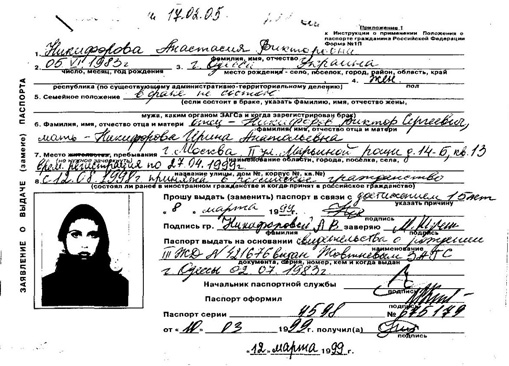 17.02.05
Приложение 1
к Инструкции о применении Положения о
паспорте гражданина Российской Федерации
Форма №1П
ЗАЯВЛЕНИЕ О ВЫДАЧЕ (замене) ПАСПОРТА
1. Никифорова Анастасия Викторовна
фамилия, имя, отчество
2. 05 VII 1983г. 3. г. Одесса Украина
число, месяц, год рождения место рождения - село, поселок, город, район, область, край
4. жен.
республика (по существующему административно-территориальному делению) пол
5. Семейное положение в браке не состою
(если состоит в браке, указать фамилию, имя, отчество жены,
мужа, каким органом ЗАГСа и когда зарегистрирован брак)
6. Фамилия, имя, отчество отца и матери отец - Никифоров Виктор Сергеевич,
фамилия, имя, отчество отца и матери
мать - Никифорова Ирина Анатольевна
7. Место жительства, пребывания г. Москва д. 14-Б, кв. 13
наименование области, города, посёлка, села,
регистрация по 27.04.1999г.
название улицы, дом №, корпус №, кв. №)
8. С 12.08.1998г принята в российское гражданство
(состоял ли ранее в иностранном гражданстве и когда принят в российское гражданство)
Прошу выдать (заменить) паспорт в связи с достижением 15 лет
указать причину
" 8 " марта 1999г.
подпись
Подпись гр. Никифоровой А В заверяю
фамилия подпись
Паспорт выдать на основании свидетельства о рождении
III ЖД № 421676 выдан Жовтневым ЗАГС
документа, серия, номер, кем и когда выдан
г Одессы 02.07.1983г.
Начальник паспортной службы
подпись
Паспорт оформил
подпись
Паспорт серии 4598 № 675179
от « 10 » 03 1999г. получил(а)
подпись
«12» марта 1999г.